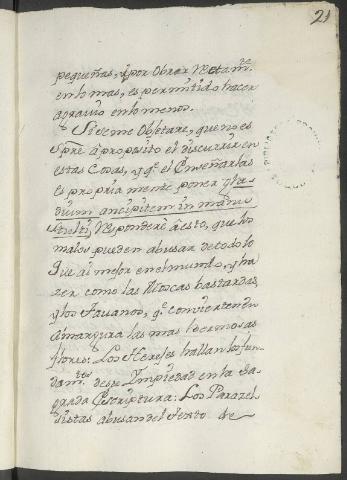 21
pequeñas, y por Obrar Rectam.te
en lo mas, es permitido hacer
agravio en lo menos.
Si se me Objetare, que no es
spre à proposito el discurrir en
estas Cosas, y q.e el Enseñarlas
es propria mente poner gla
dium ancipitem in manu
stulti, Responderè à esto, que los
malos pueden abusar de todo lo
que ai mejor en el mundo, y ha
zer como las Moscas bastardas,
y los Tavanos, q.e convierten en
Amargura las mas hermosas
flores: Los Herejes hallan los fun
dam.tos de su Impiedad en la Sa
grada Escriptura: Los Parazel
sistas abusan del Texto de